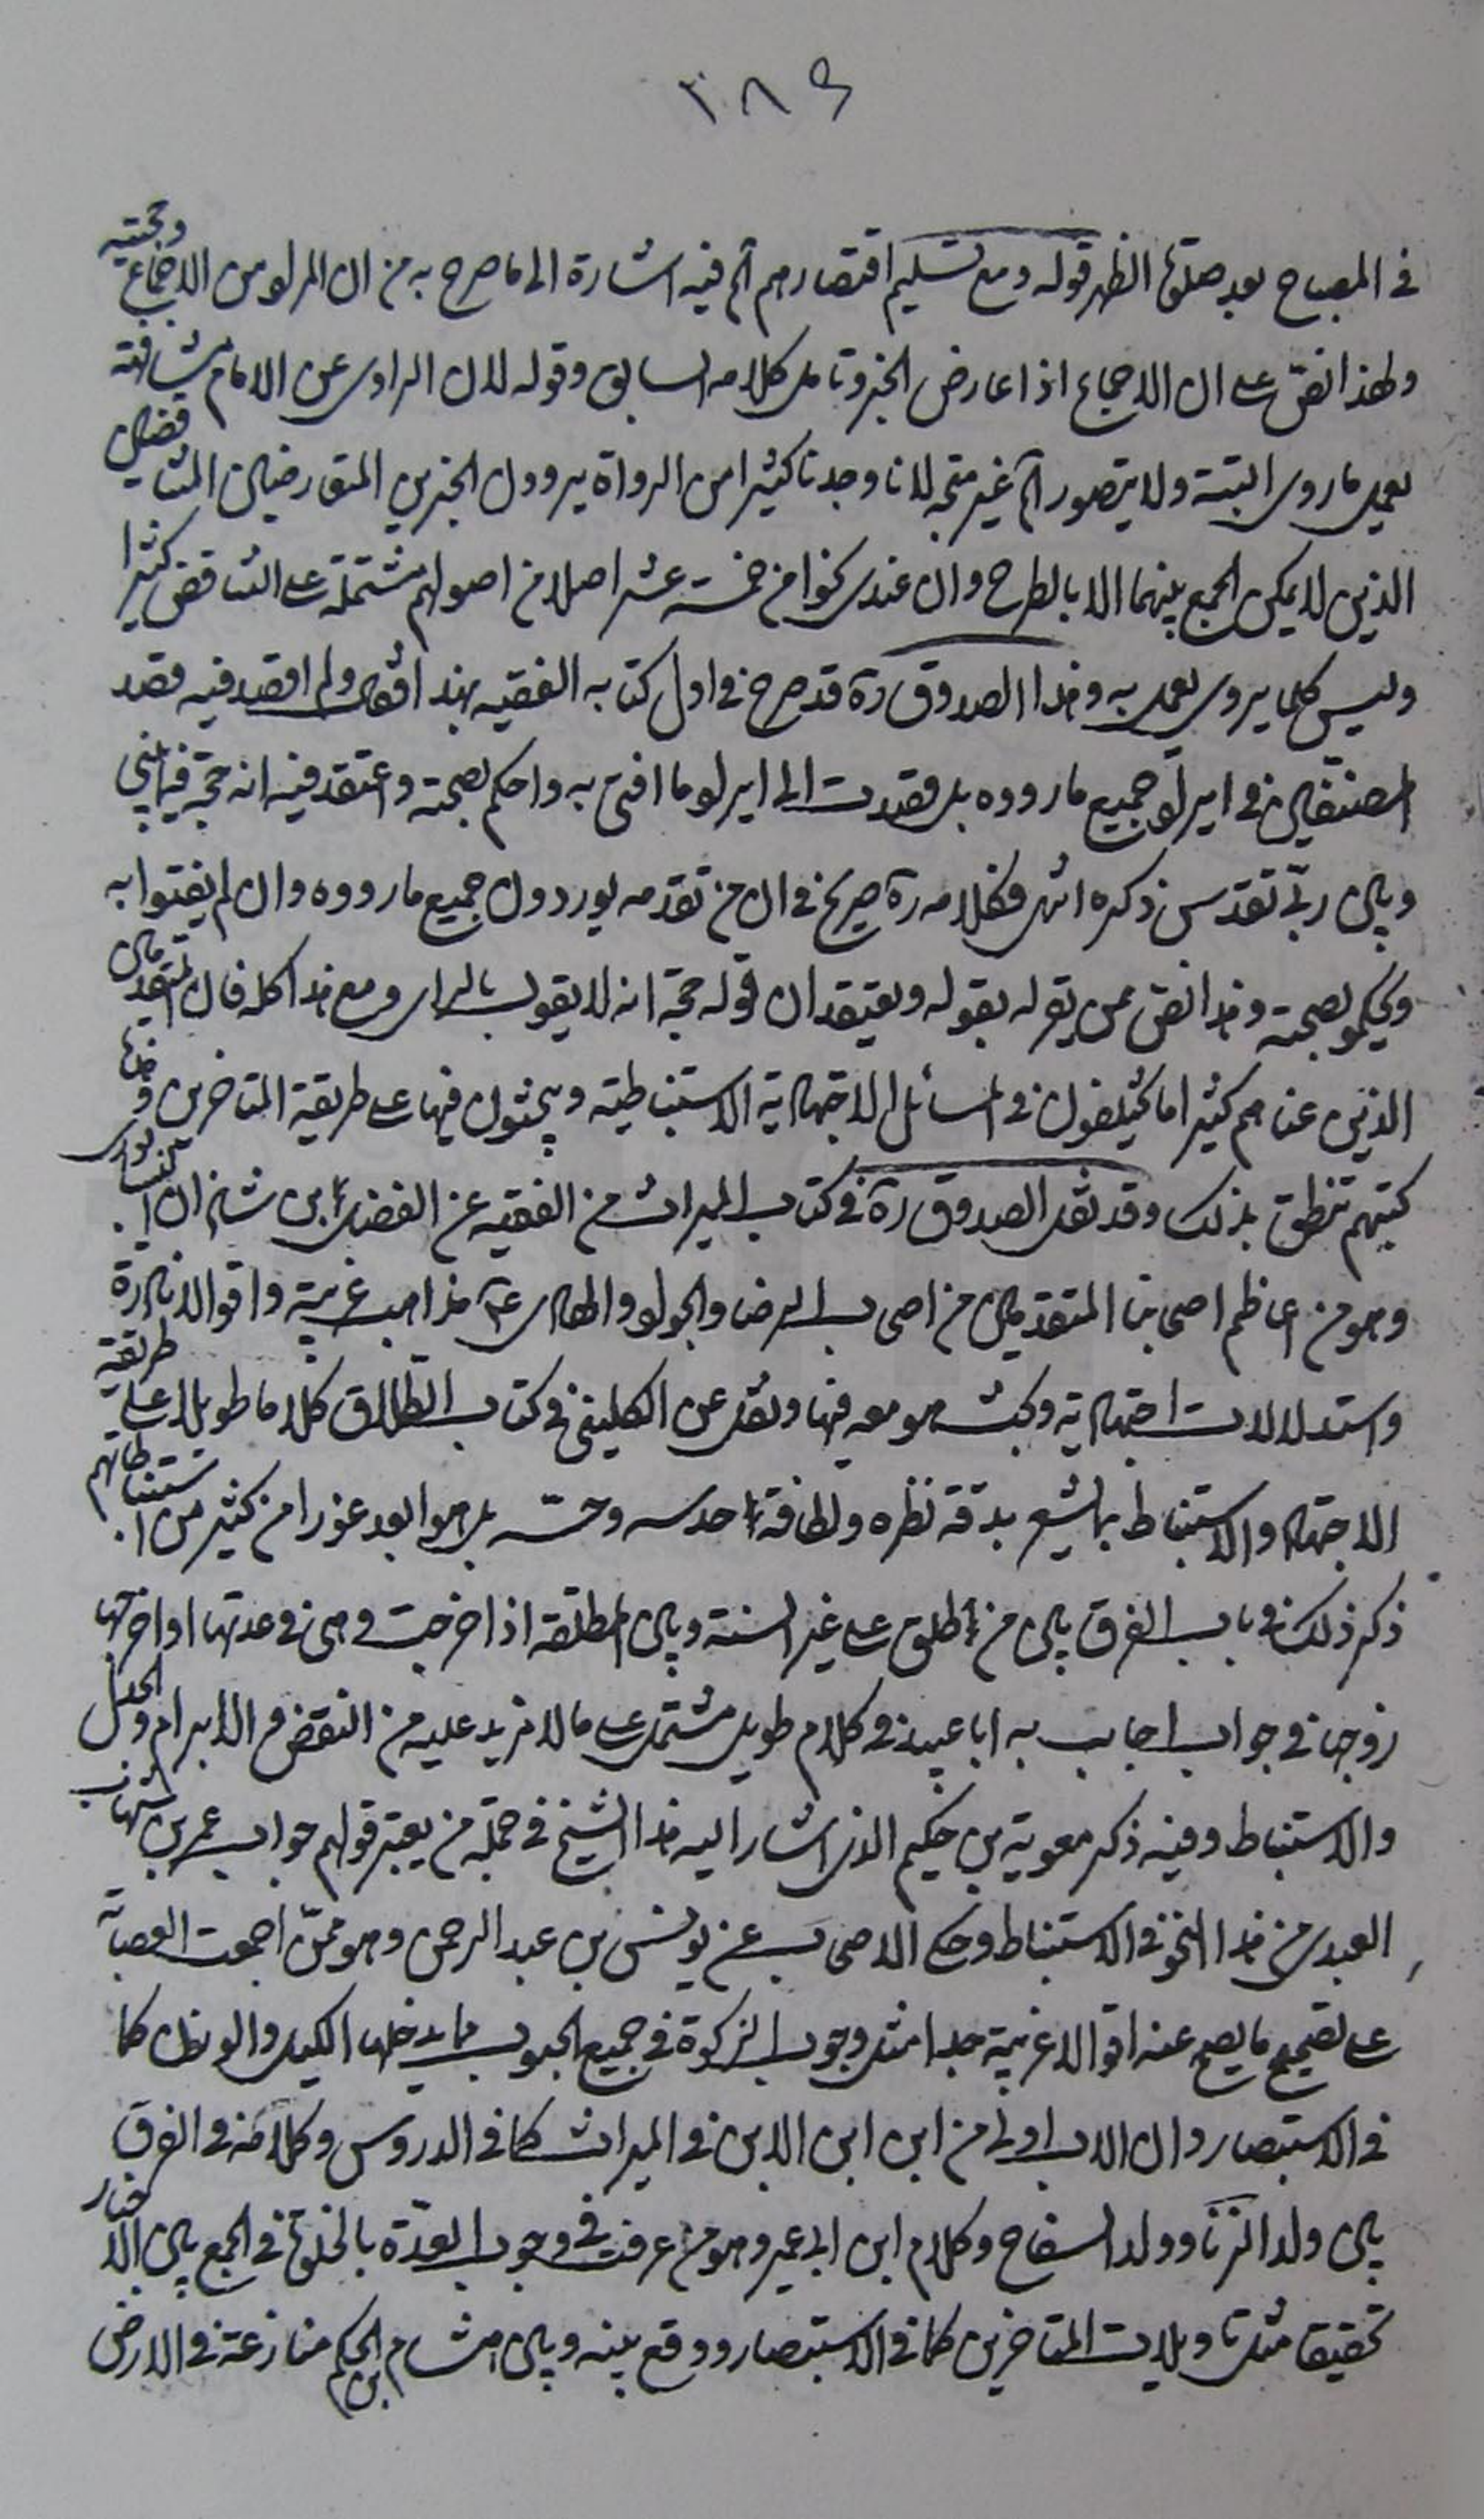 ٣٨٩
في المصباح بعد صلوة الظهر قوله ومع تسليم اقتصارهم آه فيه اشارة الى ما صرح به من ان المراد من الاجماع وحجيته
ولهذا نص على ان الاجماع اذا عارض الخبر وتامل كلامه السابق وقوله لان الراوى عن الامام مشافهة
يعمل ما روى البتة ولا يتصور آه غير متجه لانا وجدنا كثيرا من الرواة يروون الخبرين المتعارضين المتناقضين
الذين لا يمكن الجمع بينهما الا بالطرح وان عندى نحوا من خمسة عشر اصلا من اصولهم مشتملة على التناقض كثيرا
وليس كلما يروى يعمل به وهذا الصدوق ره قد صرح في اول كتابه الفقيه بهذا فقال ولم اقصد فيه قصد
المصنفين في ايراد جميع ما رووه بل قصدت الى ايراد ما افتى به واحكم بصحته واعتقد فيه انه حجة فيما بينى
وبين ربّى تقدس ذكره انتهى فكلامه ره صريح في ان من تقدمه يوردون جميع ما رووه وان لم يفتوا به
ويحكموا بصحته وهذا نص ممن يقر له بقوله ويعتقد ان قوله حجة انه لا يقول بالراى ومع هذا كله فان المتقدمين
الذين عناهم كثيرا ما يختلفون في المسائل الاجتهادية الاستنباطية ويبحثون فيها على طريقة المتاخرين وهذه
كتبهم تنطق بذلك وقد نقل الصدوق ره في كتاب الميراث من الفقيه عن الفضل بن شاذان النيسابورى
وهو من اعاظم اصحابنا المتقدمين من اصحاب الرضا والجواد والهادى ع مذاهب غريبة واقوالا نادرة
واستدلالات اجتهادية وبحث هو معه فيها ونقل عن الكلينى في كتاب الطلاق كلاما طويلا على طريقة
الاجتهاد والاستنباط بما يشعر بدقة نظره ولطافة حدسه وحسّه بل هو ابعد غورا من كثير من استنباطاتهم
ذكر ذلك في باب الفرق بين من طلق على غير السنة وبين المطلقة اذا خرجت وهى في عدتها او اخرجها
زوجها في جواب اجاب به ابا عبيد في كلام طويل مشتمل على ما لا مزيد عليه من النقض والابرام والجدل
والاستنباط وفيه ذكر معوية بن حكيم الذى اشار اليه هذا الشيخ في جملة من يعتبر قولهم جواب عمر بن شهاب
العبدى من هذا النحو في الاستنباط وحكى الاصحاب عن يونس بن عبد الرحمن وهو ممن اجمعت العصابة
على تصحيح ما يصح عنه اقوالا غريبة جدا مثل وجوب الزكوة في جميع الحبوب مما يدخلها الكيل والوزن كما
في الاستبصار وان الاب اولى من ابن ابن الابن في الميراث كما في الدروس وكلامه في الفرق
بين ولد الزنا وولد السفاح وكلام ابن ابى عمير وهو من عرفت في وجوب العدّة بالخلوة في الجمع بين الاخبار
تحقيقا مثل تاويلات المتاخرين كما في الاستبصار ووقع بينه وبين هشام بن الحكم منازعة في الارض